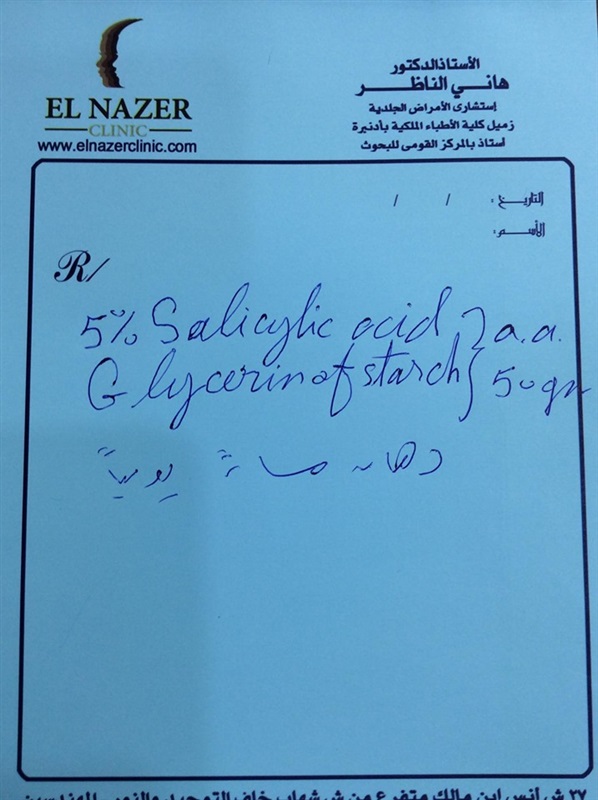 EL NAZER
CLINIC
www.elnazerclinic.com
الأستاذ الدكتور
هاني الناظر
إستشارى الأمراض الجلدية
زميل كلية الأطباء الملكية بأدنبرة
أستاذ بالمركز القومى للبحوث
التاريخ : / /
الأسم:
R/
5% Salicylic acid } a.a.
Glycerin of starch } 50 gm
دهان مساءً يومياً
٢٧ ش أنس ابن مالك متفرع من ش شهاب خلف التوحيد والنور المهندسين